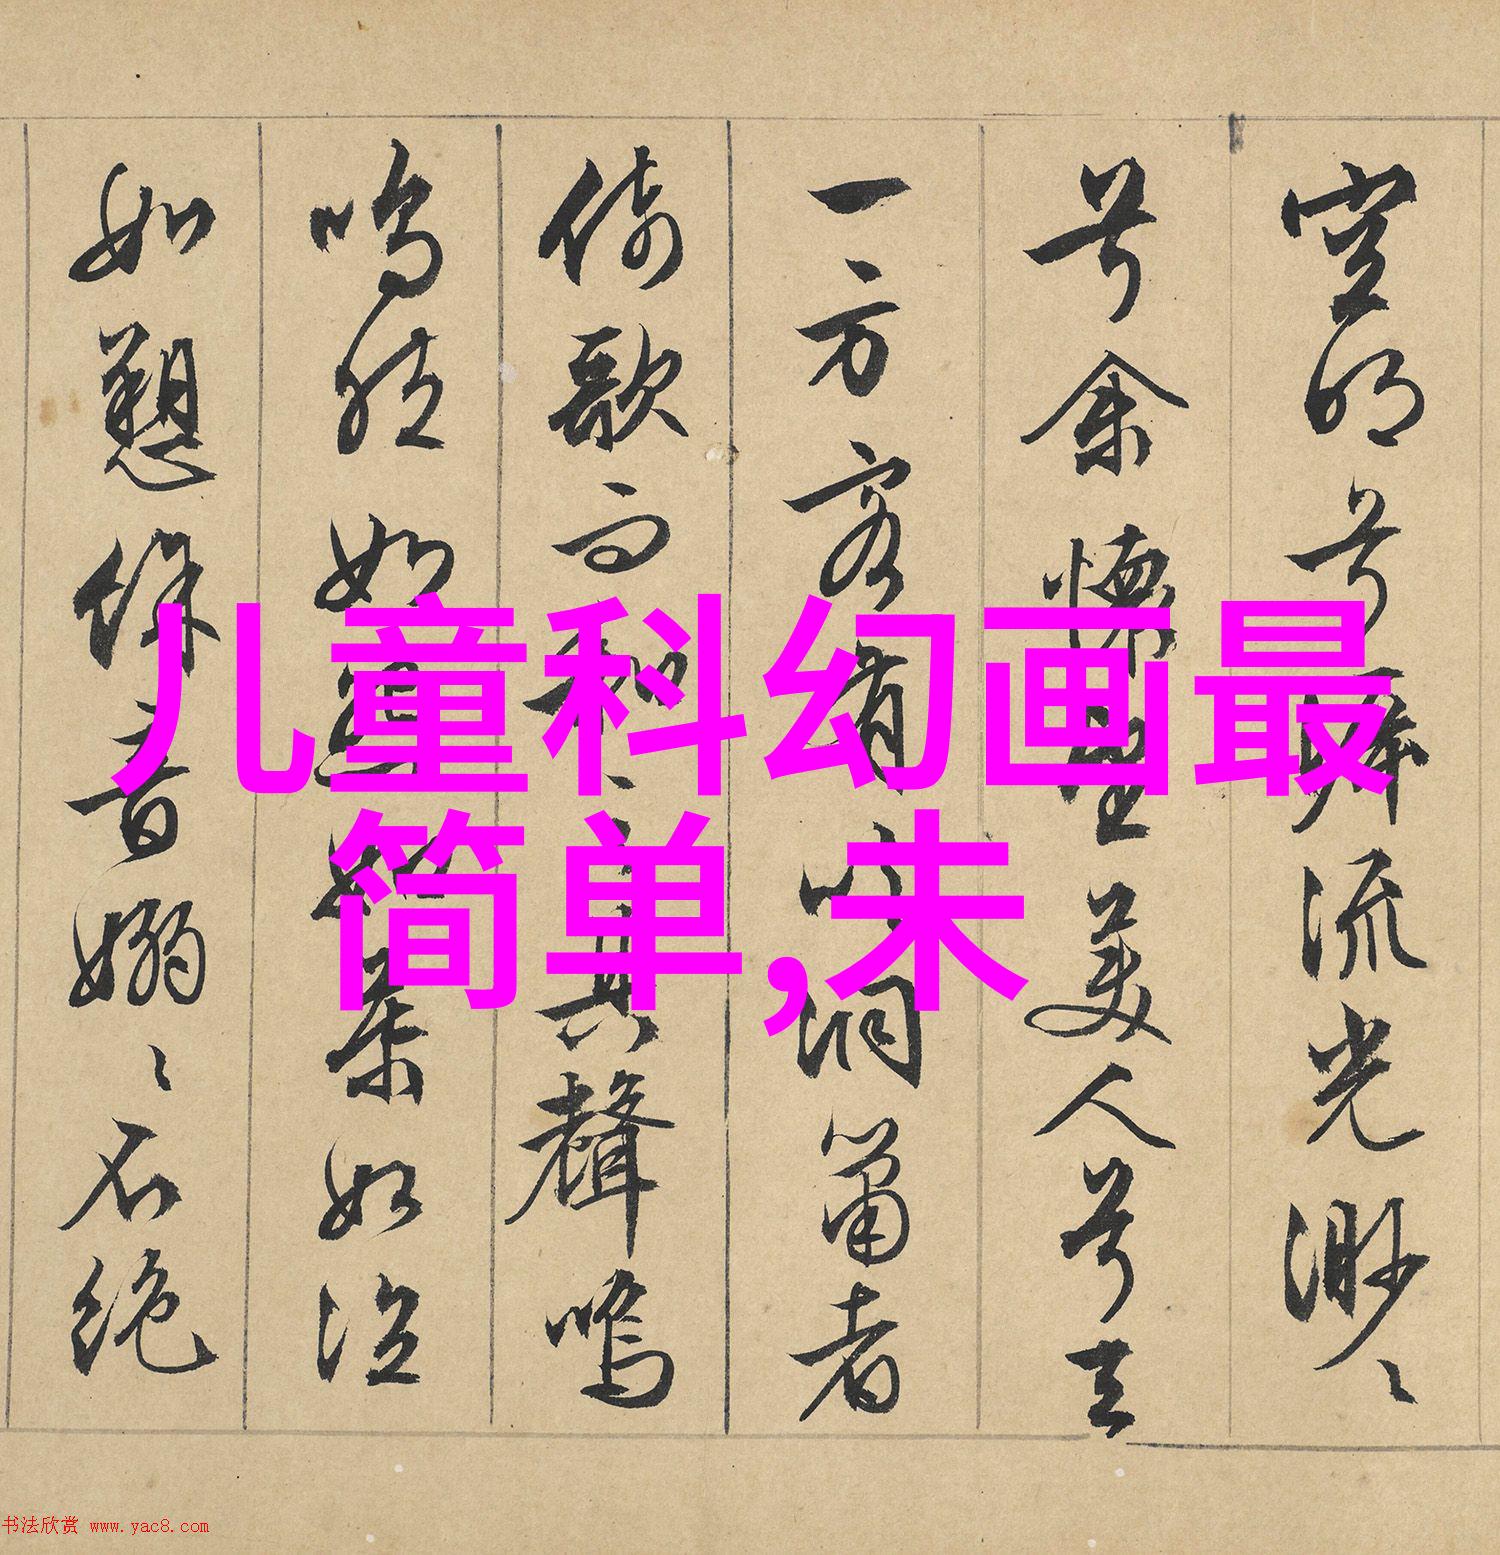 空明兮溯流光渺〻
兮余懷望美人兮天
一方客有吹洞簫者
倚歌而和之其聲嗚
嗚然如怨如慕如泣
如愬餘音嫋〻不絕
儿童科幻画最
简单,未
书法欣赏 www.yac8.com